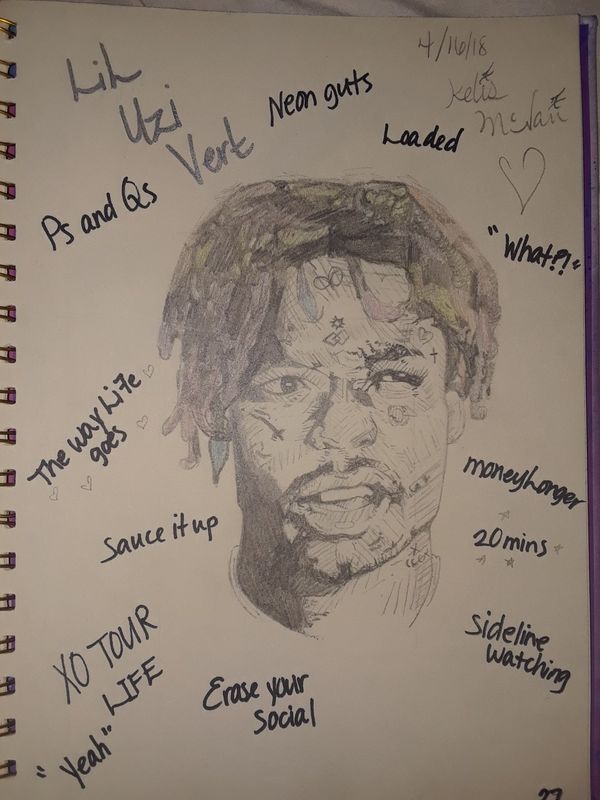 4/16/18
Kelis
McNair
LiL
Uzi
Vert
Neon guts
Loaded
Ps and Qs
"What?!"
The way Life
goes
moneylonger
Sauce it up
20 mins
XO TOUR
LIFE
Sideline
Watching
Erase your
Social
"Yeah"